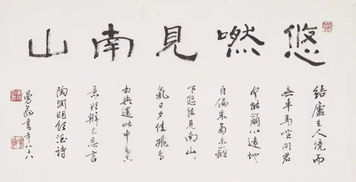 悠嘫見南山
結廬在人境而
無車馬喧問君
何能爾心遠地
自偏采菊東籬
下悠然見南山
氣日夕佳飛鳥
相與還此中有真
意欲辨已忘言
陶淵明飲酒詩
曼翁書年八六